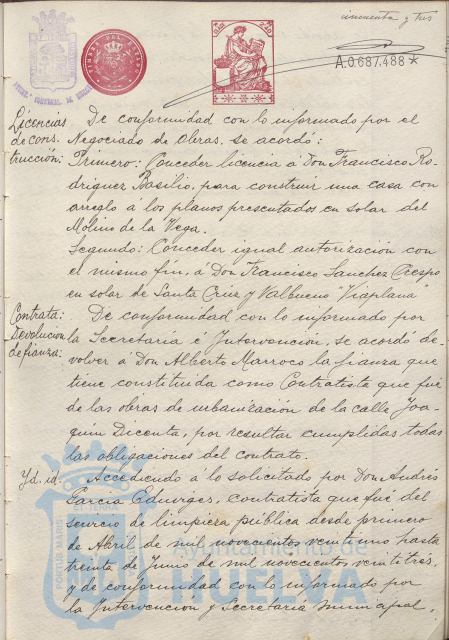 cincuenta y tres
TIMBRE DEL ESTADO
A.0.687.488*
Licencias
de cons
trucción:
De conformidad con lo informado por el
Negociado de Obras, se acordó:
Primero: Conceder licencia á Don Francisco Ro-
driguez Basilio, para construir una casa con
arreglo á los planos presentados en solar del
Molino de la Vega.
Segundo: Conceder igual autorización con
el mismo fin, á Don Francisco Sanchez Crespo
en solar de Santa Cruz y Valbueno "Viaplana"
Contrata:
Devolucion
de fianza:
De conformidad con lo informado por
la Secretaría é Intervención, se acordó de-
volver á Don Alberto Marroco la fianza que
tiene constituída como Contratista que fué
de las obras de urbanización de la calle Joa-
quin Dicenta, por resultar cumplidas todas
las obligaciones del contrato.
Yd. id.
Accediendo á lo solicitado por Don Andrés
Garcia Eduvirges, contratista que fué del
servicio de limpieza pública desde primero
de Abril de mil novecientos veintiuno hasta
treinta de Junio de mil novecientos veintitrés,
y de conformidad con lo informado por
la Intervencion y Secretaría municipal,
Ayuntamiento de
HUELVA